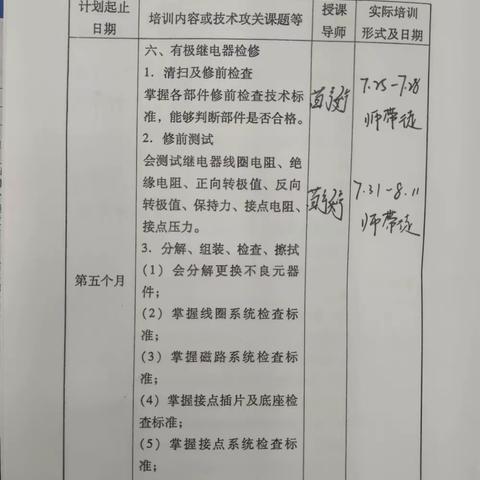 计划起止
日期
培训内容或技术攻关课题等
授课
导师
实际培训
形式及日期
第五个月
六、有极继电器检修
1. 清扫及修前检查
掌握各部件修前检查技术标
准，能够判断部件是否合格。
7.25-7.28
师带徒
2. 修前测试
会测试继电器线圈电阻、绝
缘电阻、正向转极值、反向
转极值、保持力、接点电阻、
接点压力。
7.31-8.11
师带徒
3. 分解、组装、检查、擦拭
(1) 会分解更换不良元器
件；
(2) 掌握线圈系统检查标
准；
(3) 掌握磁路系统检查标
准；
(4) 掌握接点插片及底座检
查标准；
(5) 掌握接点系统检查标
准；